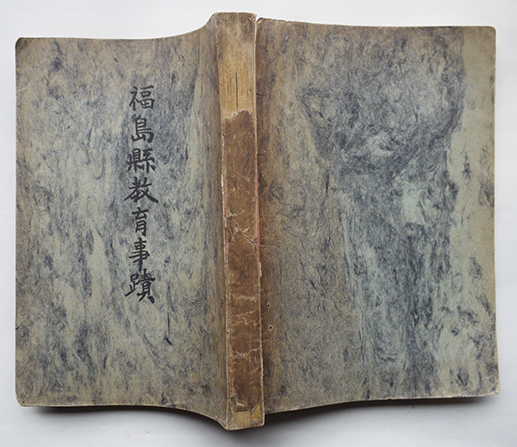 福島縣教育事蹟